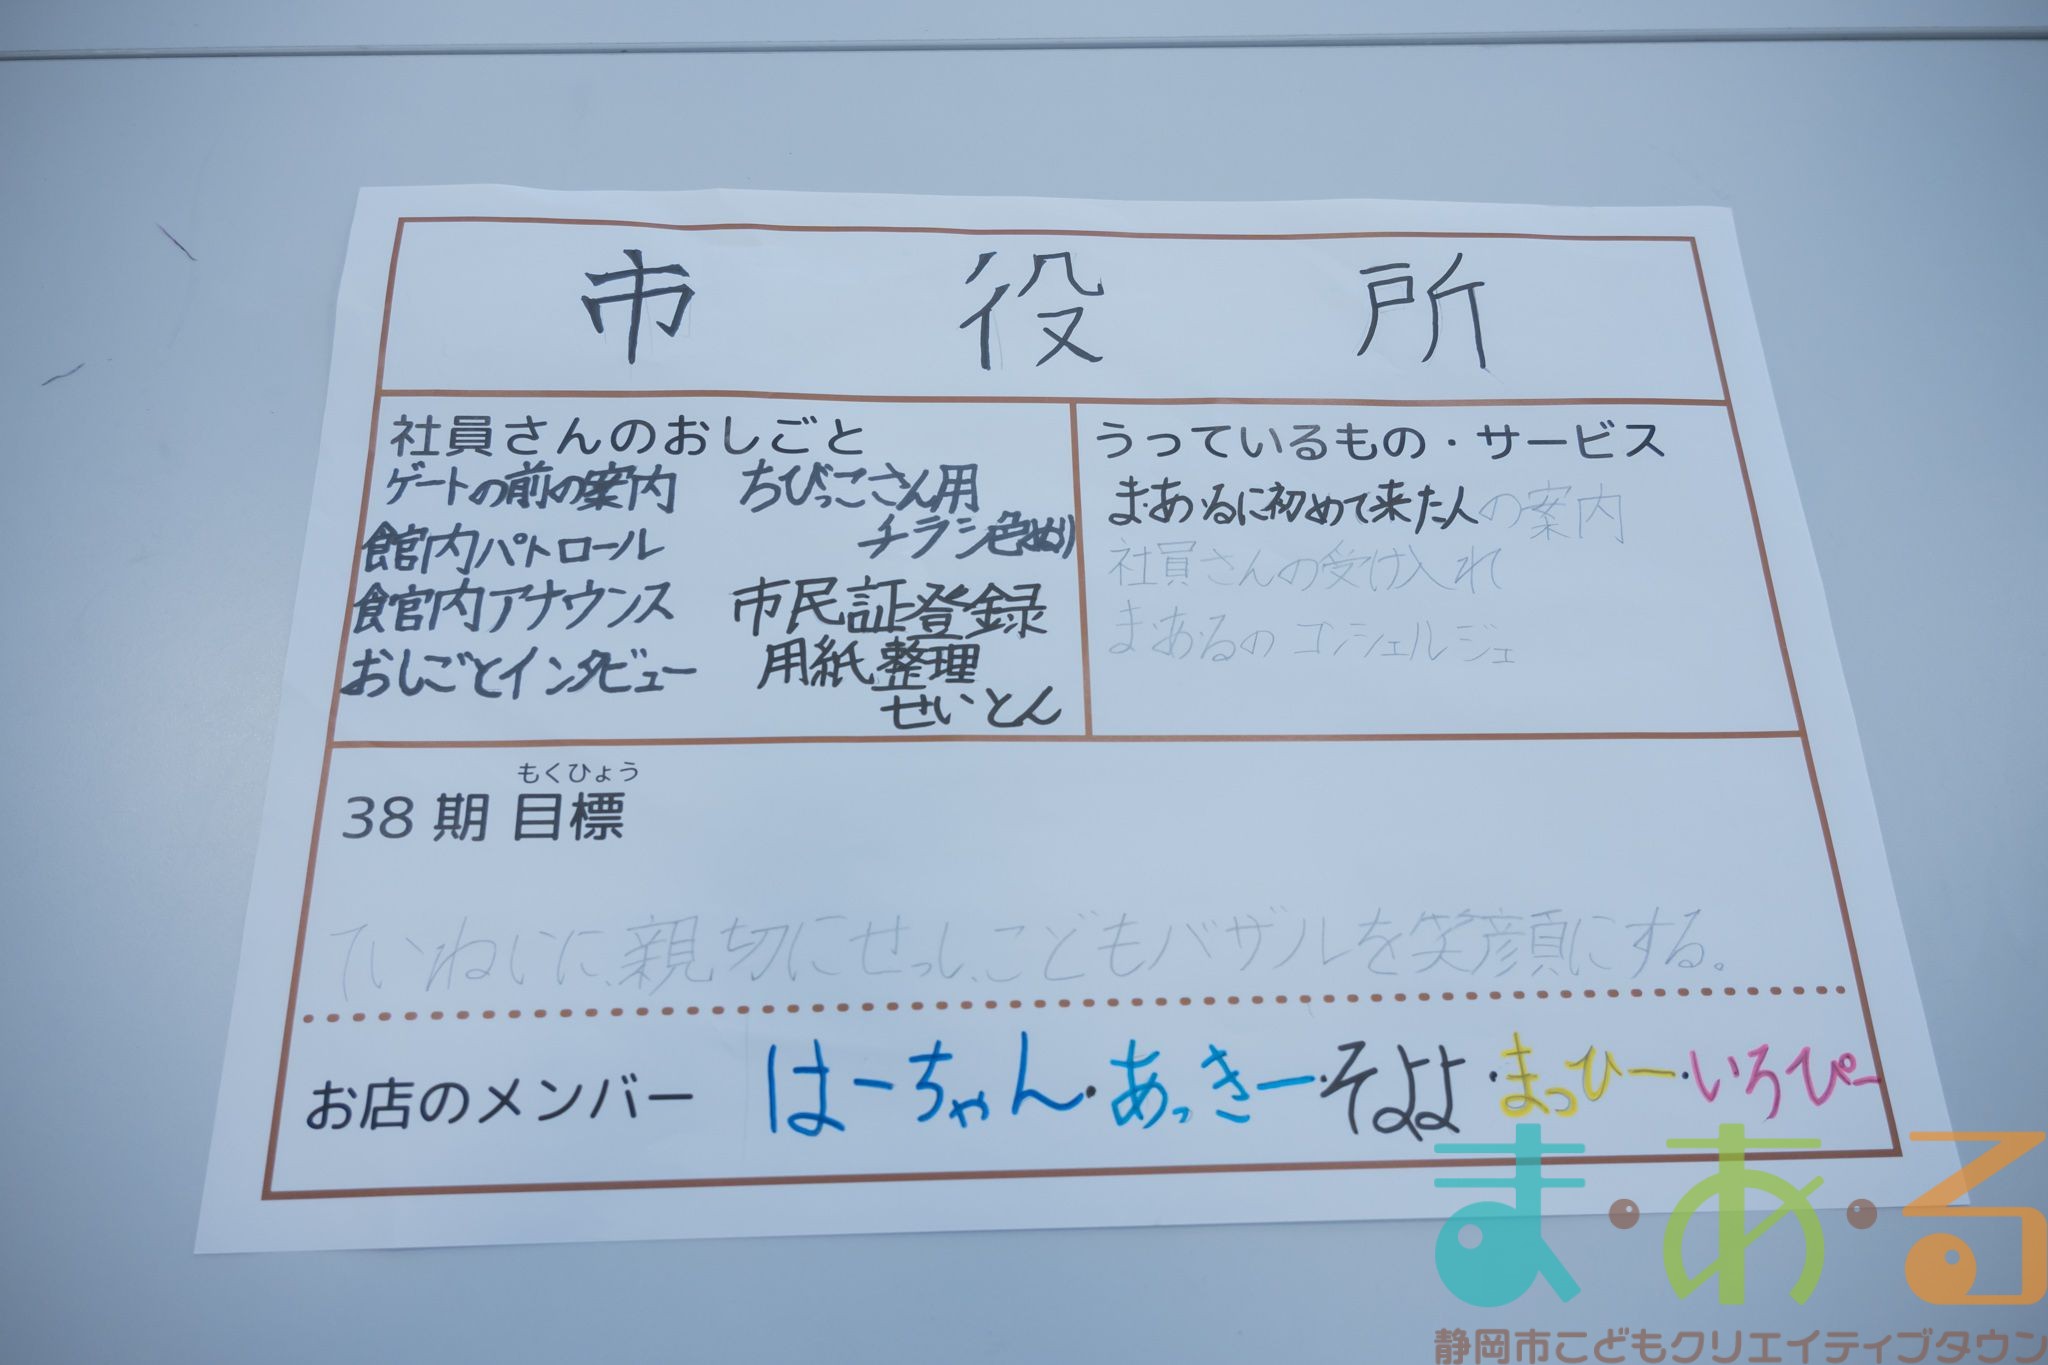 市役所
社員さんのおしごと
ゲートの前の案内
館内パトロール
館内アナウンス
おしごとインタビュー
ちびっこさん用
チラシ色ぬり
市民証登録
用紙整理
せいとん
うっているもの・サービス
ま・あ・るに初めて来た人の案内
社員さんの受け入れ
ま・あ・るのコンシェルジェ
もくひょう
38期 目標
ていねいに、親切にせっし、こどもバザールを笑顔にする。
お店のメンバー はーちゃん・あっきー・そよよ・まっひー・いろぴー
ま・あ・る
静岡市こどもクリエイティブタウン